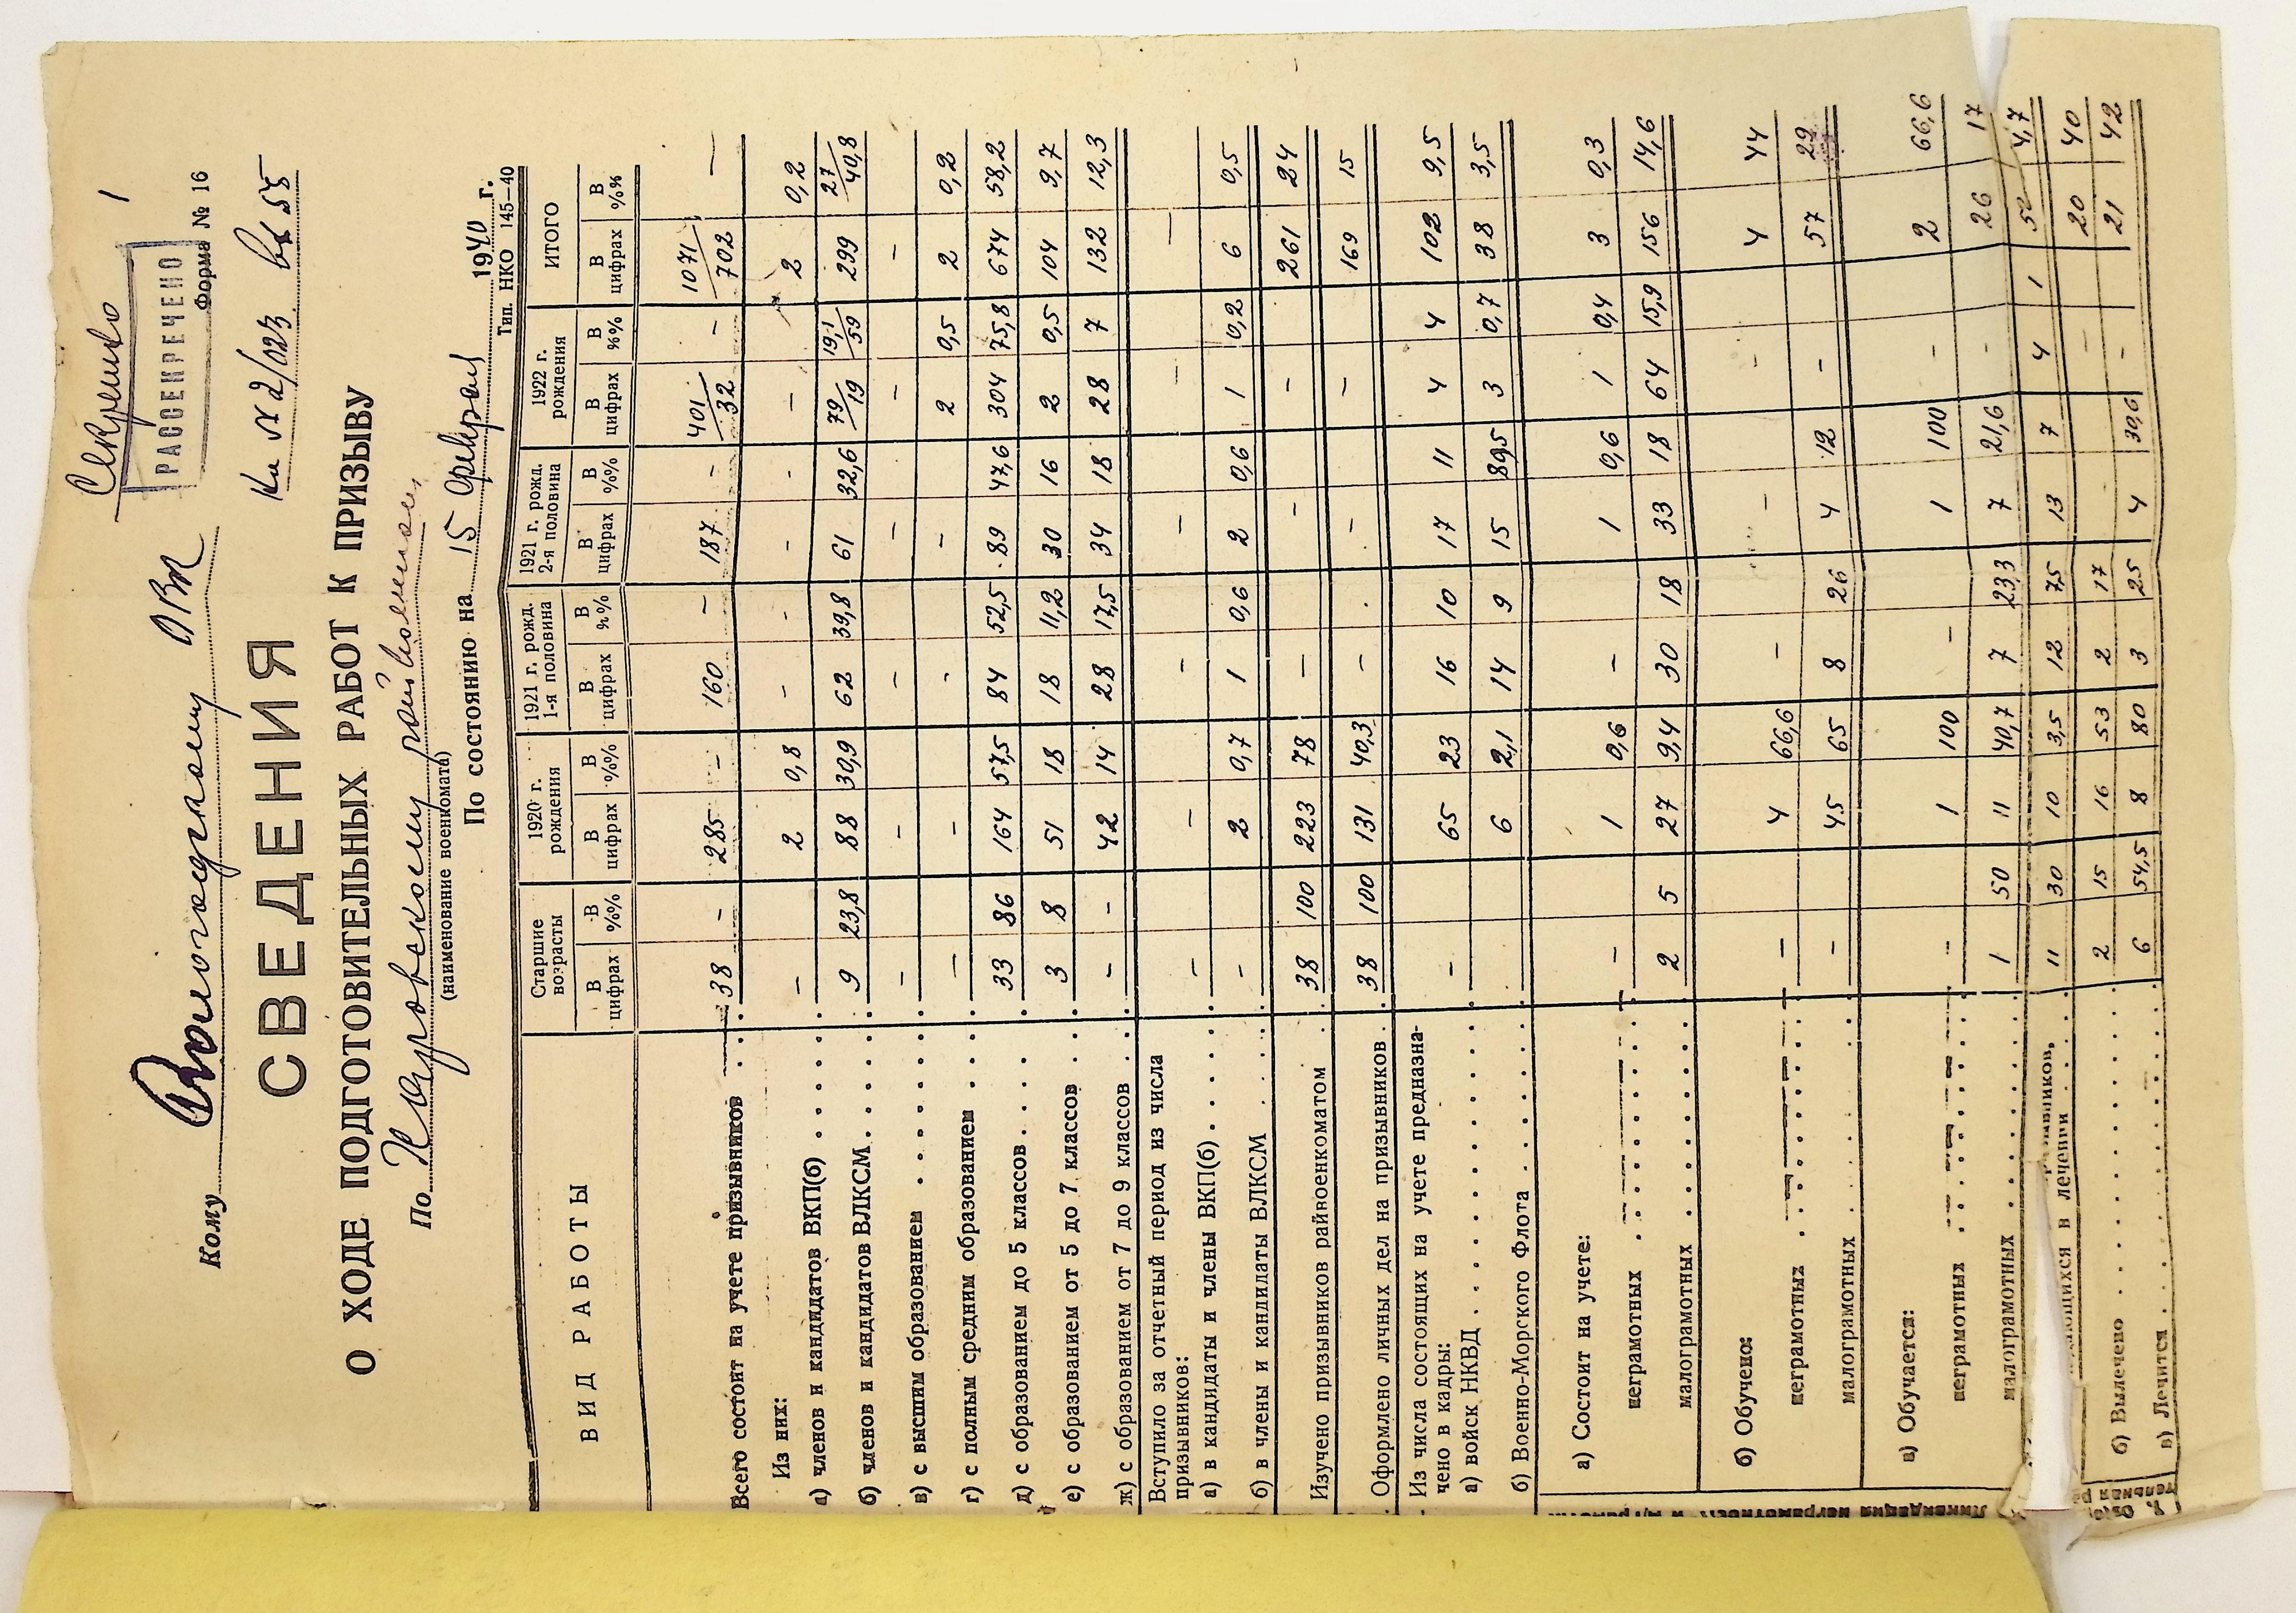 Секретно 1
РАССЕКРЕЧЕНО
Форма № 16
Кому Вологодскому ОВК
На №2/023
СВЕДЕНИЯ
О ХОДЕ ПОДГОТОВИТЕЛЬНЫХ РАБОТ К ПРИЗЫВУ
По
(наименование военкомата)
По состоянию на 15 февраля 1940 г.
Тип. НКО 145—40
ВИД РАБОТЫ | Старшие возрасты | 1920 г. рождения | 1921 г. рожд. 1-я половина | 1921 г. рожд. 2-я половина | 1922 г. рождения | ИТОГО
В цифрах | В %% | В цифрах | В %% | В цифрах | В %% | В цифрах | В %% | В цифрах | В %% | В цифрах | В %%
Всего состоит на учете призывников . . . 38 – 285 – 160 – 187 – 401/32 – 1071/702 –
Из них:
а) членов и кандидатов ВКП(б) . . . . . – 2 0,8 – - - - – 2 0,2
б) членов и кандидатов ВЛКСМ . . . . 9 23,8 88 30,9 62 39,8 61 32,6 79/19 19,1/59 299 27/40,8
в) с высшим образованием . . . . . . – – – – – –
г) с полным средним образованием . . . – – - – 2 0,5 2 0,2
д) с образованием до 5 классов . . . . 33 86 164 57,5 84 52,5 89 47,6 304 75,8 674 58,2
е) с образованием от 5 до 7 классов . . 3 8 51 18 18 11,2 30 16 2 0,5 104 9,7
ж) с образованием от 7 до 9 классов . . – – 42 14 28 17,5 34 18 28 7 132 12,3
Вступило за отчетный период из числа
призывников:
а) в кандидаты и члены ВКП(б) . . . . . – – – – – –
б) в члены и кандидаты ВЛКСМ . . . . - 2 0,7 1 0,6 2 0,6 1 0,2 6 0,5
Изучено призывников райвоенкоматом . . 38 100 223 78 – – – 261 24
Оформлено личных дел на призывников . . 38 100 131 40,3 – – – 169 15
Из числа состоящих на учете предназна-
чено в кадры:
а) войск НКВД . . . . . . . . . . - 65 23 16 10 17 11 4 4 102 9,5
б) Военно-Морского Флота . . . . . . 6 2,1 14 9 15 3 0,7 38 3,5
Ликвидация неграмотности и
а) Состоит на учете:
неграмотных . . . . . . . – 1 0,6 – 1 0,6 1 0,4 3 0,3
малограмотных . . . . . . . 2 5 27 9,4 30 18 33 18 64 15,9 156 14,6
б) Обучено:
неграмотных . . . . . . . – 4 66,6 – – – 4 44
малограмотных . . . . . – 45 65 8 26 4 12 – 57 29
в) Обучается:
неграмотных . . . . . . . – 1 100 – 1 100 – 2 66,6
малограмотных . . . . . . . 1 50 11 40,7 7 23,3 7 21,6 – 26 17
в лечении . . . 11 30 10 3,5 12 7,5 13 7 4 1 50 4,7
б) Вылечено . . . . . . . . . . 2 15 16 53 2 17 – 20 40
в) Лечится . . . . . . . . . . 6 54,5 8 80 3 25 4 30,6 – 21 42